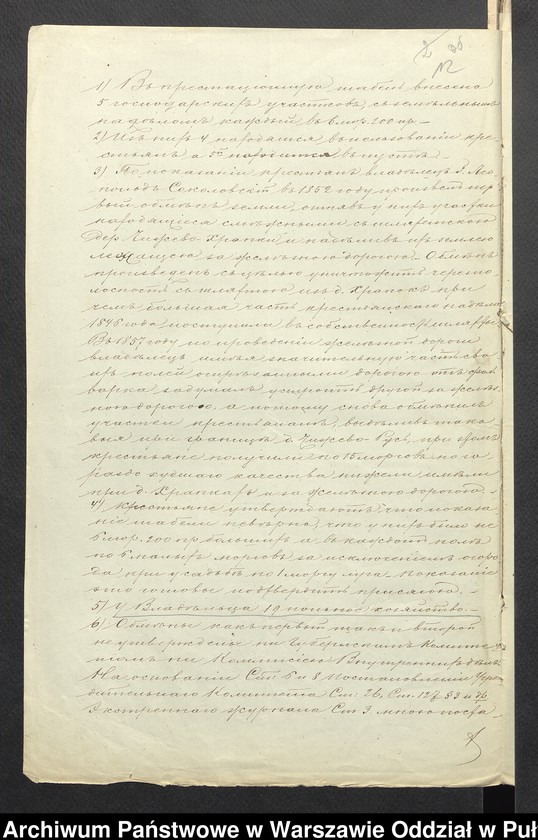 2 36
12
1) Въ престаціонную табель внесено
5 господарскихъ участковъ, съ земельнымъ
надѣломъ каждый въ 6 мор. 200 пр.
2) Изъ нихъ 4 находятся въ пользованіи кре-
стьянъ, а 5й находится въ пустѣ.
3) По показанію крестьянъ владѣлецъ д. Лео-
польдъ Соколовскій въ 1852 году произвелъ пер-
вый обмѣнъ земли, отнявъ у нихъ участки
находящіеся смежными съ шляхетскою
дер. Чижево Храпки и надѣливъ ихъ землею
лежащею за желѣзною дорогою. Обмѣнъ
произведенъ съ цѣлью уничтожить черезпо-
лосность съ шляхтою изъ д. Храпокъ при
чемъ большая часть крестьянскаго надѣла
1846 года поступила въ собственность шляхты
Въ 1857 году по проведеніи желѣзной дороги
владѣлецъ имѣя значительную часть сво-
ихъ полей отрѣзанными дорогою отъ фоль-
варка задумалъ устроить другой за желѣз-
ною дорогою, а потому снова обмѣнилъ
участки крестьянамъ, выдѣливъ тако-
выя при границѣ д. Чижево Русь, при чемъ
крестьяне получили по 15 морговъ но го-
раздо худшаго качества нежели имѣли
при д. Храпкахъ и за желѣзною дорогою.
4) Крестьяне утверждаютъ, что показа-
ніе табели невѣрно, что у нихъ было не
6 мор. 200 пр. большихъ а въ каждомъ полѣ
по 6 малыхъ морговъ за исключеніемъ огоро-
да при усадьбѣ по 1 моргу луга показаніе
это готовы подтвердить присягою.
5) У Владѣльца 19 конное хозяйство.
6) Обмѣны какъ первый такъ и второй
не утверждены ни Губернскимъ Комите-
томъ ни Комисіею Внутреннихъ дѣлъ.
На основаніи Стт. 6 и 8 Постановленія Учре-
дительнаго Комитета Ст. 26, Ст. 127 § 3 и
Экстреннаго журнала Ст 3 мною поста-
Archiwum Państwowe w Warszawie Oddział w Puł